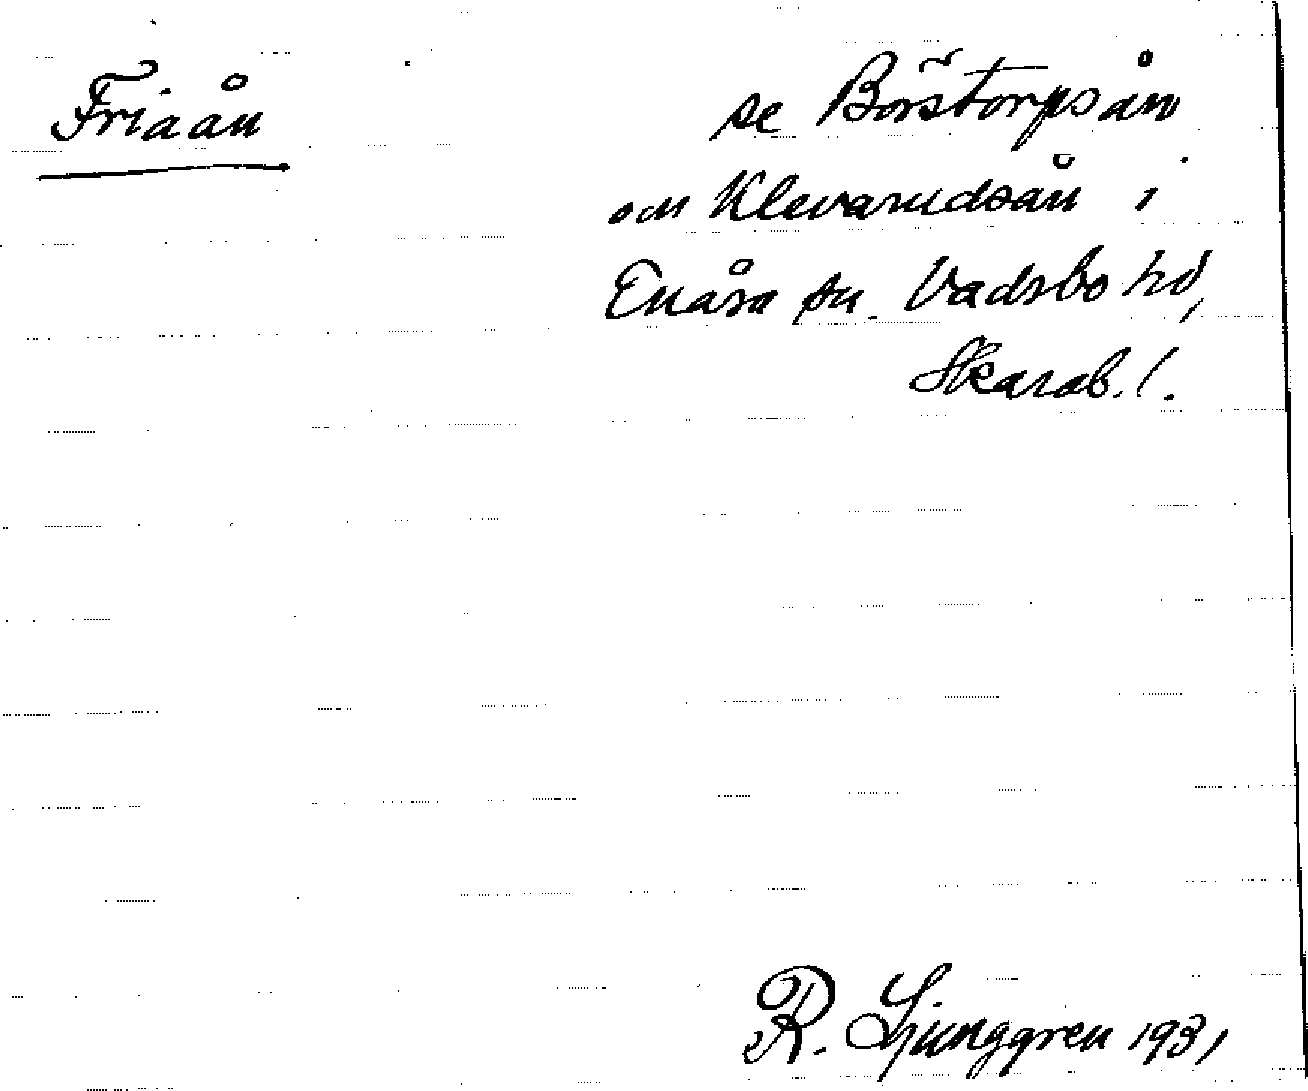 Friaån
se Börstorpsån
och Klevarudsån i
Enåsa sn. Vadsbo hd,
Skarab. l.
R. Ljunggren 1931